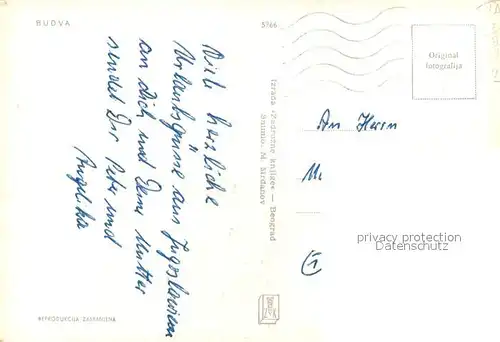 BUDVA
5766
Original
fotografija
Viele herzliche
Urlaubsgrüsse aus Jugoslawien
an Dich und Deine Mutter
sendet Dir Peter und
Angelika
Izrada «Zadružne knjige» — Beograd
Snimio: M. Mirdanov
An Herrn
M
privacy protection
Datenschutz
REPRODUKCIJA ZABRANJENA